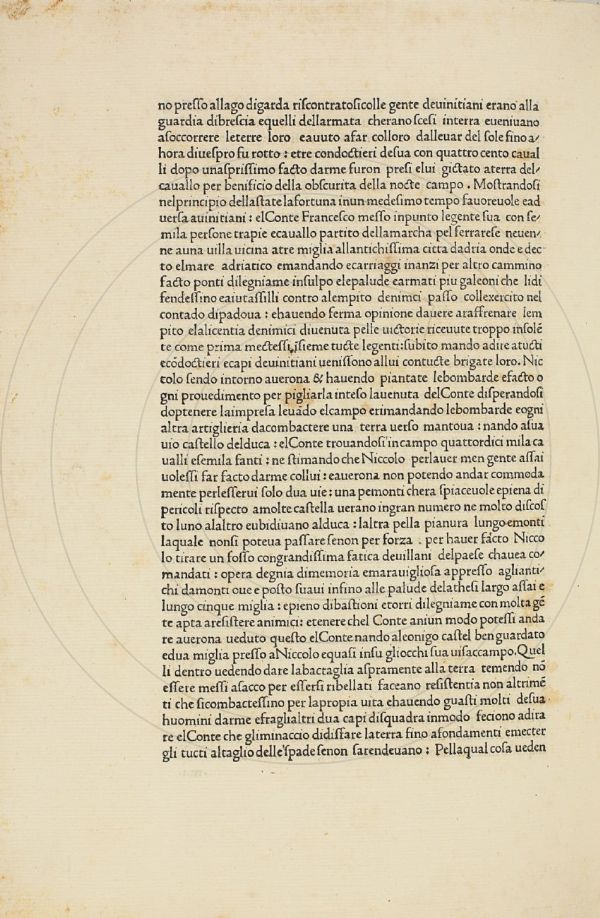 no presso allago digarda riscontratosicolle gente deuinitiani erano alla
guardia dibrescia equelli dellarmata cherano scesi interra eueniuano
asoccorrere leterre loro eauuto afar colloro dalleuar del sole fino a/
hora diuespro fu rotto : etre condoctieri desua con quattro cento caual
li dopo unasprissimo facto darme furon presi elui gictato aterra del/
cauallo per benificio della obscurita della nocte campo . Mostrandosi
nelprincipio dellastate lafortuna inun medesimo tempo fauoreuole ead
uersa auinitiani : elConte Francesco messo inpunto legente sua con se/
mila persone trapie ecauallo partito dellamarcha pel ferrarese neuen/
ne auna uilla uicina atre miglia allantichissima citta dadria onde e dec
to elmare adriatico emandando ecarriaggi inanzi per altro cammino
facto ponti dilegniame insulpo elepalude earmati piu galeoni che lidi
fendessino eaiutassilli contro alempito denimci passo collexercito nel
contado dipadoua : ehauendo ferma opinione dauere araffrenare lem
pito elalicentia denimici diuenuta pelle uictorie riceuute troppo insolē
te come prima mectessi, isieme tucte legenti: subito mando adire atucti
ecōdoctieri ecapi deuinitiani uenissono allui contucte brigate loro. Nic
colo sendo intorno auerona & hauendo piantate lebombarde efacto o
gni prouedimento per pigliarla inteso lauenuta delConte disperandosi
doptenere laimpresa leuādo elcampo erimandando lebombarde eogni
altra artiglieria dacombactere una terra uerso mantoua : nando asua
uio castello delduca : elConte trouandosi incampo quattordici mila ca
ualli esemila fanti : ne stimando che Niccolo perlauer men gente assai
uolessi far facto darme collui : eauerona non potendo andar commoda
mente perlesserui solo dua uie : una pemonti chera spiaceuole epiena di
pericoli rispecto amolte castella uerano ingran numero ne molto discos
to luno alaltro eubidiuano alduca : laltra pella pianura lungo emonti
laquale nonsi poteua passare senon per forza . per hauer facto Nicco
lo tirare un fosso congrandissima fatica deuillani delpaese chauea co/
mandati : opera degnia dimemoria emarauigliosa appresso aglianti/
chi damonti oue e posto suaui infino alle palude delathesi largo assai e
lungo cinque miglia : epieno dibastioni etorri dilegniame con molta gē
te apta aresistere animici : etenere chel Conte aniun modo potessi anda
re auerona ueduto questo elConte nando alconigo castel ben guardato
edua miglia presso aNiccolo equasi insu gliocchi sua uisaccampo. Quel
li dentro uedendo dare labactaglia aspramente alla terra temendo nō
essere messi asacco per essersi ribellati faceano resistentia non altrimē
ti che sicombactessino per lapropia uita ehauendo guasti molti desua
huomini darme efraglialtri dua capi disquadra inmodo feciono adira
re elConte che gliminaccio didisfare laterra fino afondamenti emecter
gli tucti altaglio dellespade senon sarendeuano : Pellaqual cosa ueden